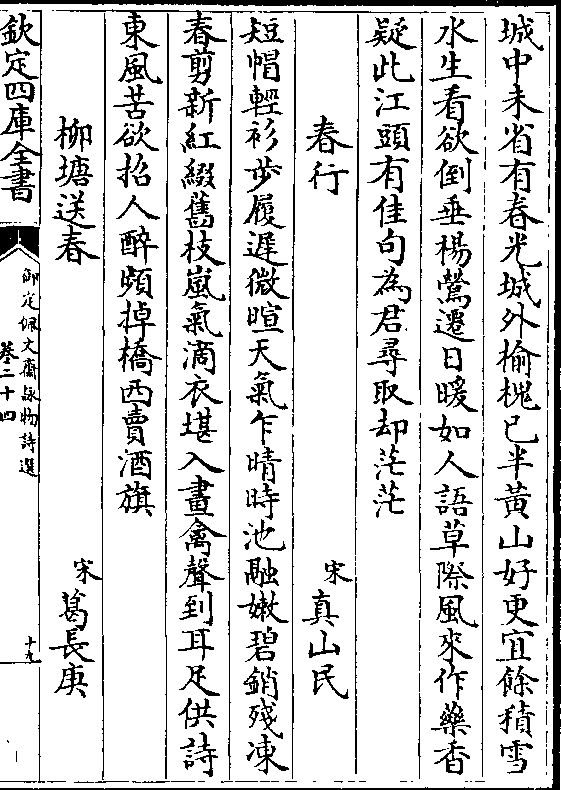 城中未省有春光城外榆槐已半黄山好更宜餘積雪
水生看欲倒垂楊鶯邊日暖如人語草際風來作藥香
疑此江頭有佳句為君尋取却茫茫
春行
宋
真山民
短帽輕衫步履遲微暄天氣乍晴時池融嫩碧銷殘凍
春剪新紅綴舊枝嵐氣滴衣堪入畫禽聲到耳足供詩
東風苦欲招人醉頻掉橋西賣酒旗
柳塘送春
宋
葛長庚
欽定四庫全書
御定佩文齋詠物詩選
卷二十四
十九